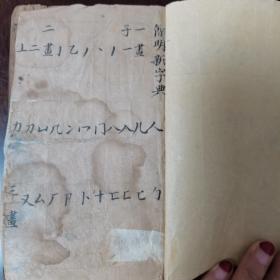 簡明新字典
子
一畫
一丨丶丿乙亅
二畫
二亠
人儿入八冂冖冫几凵刀力
勹匕匚匸十卜卩厂厶又
三畫